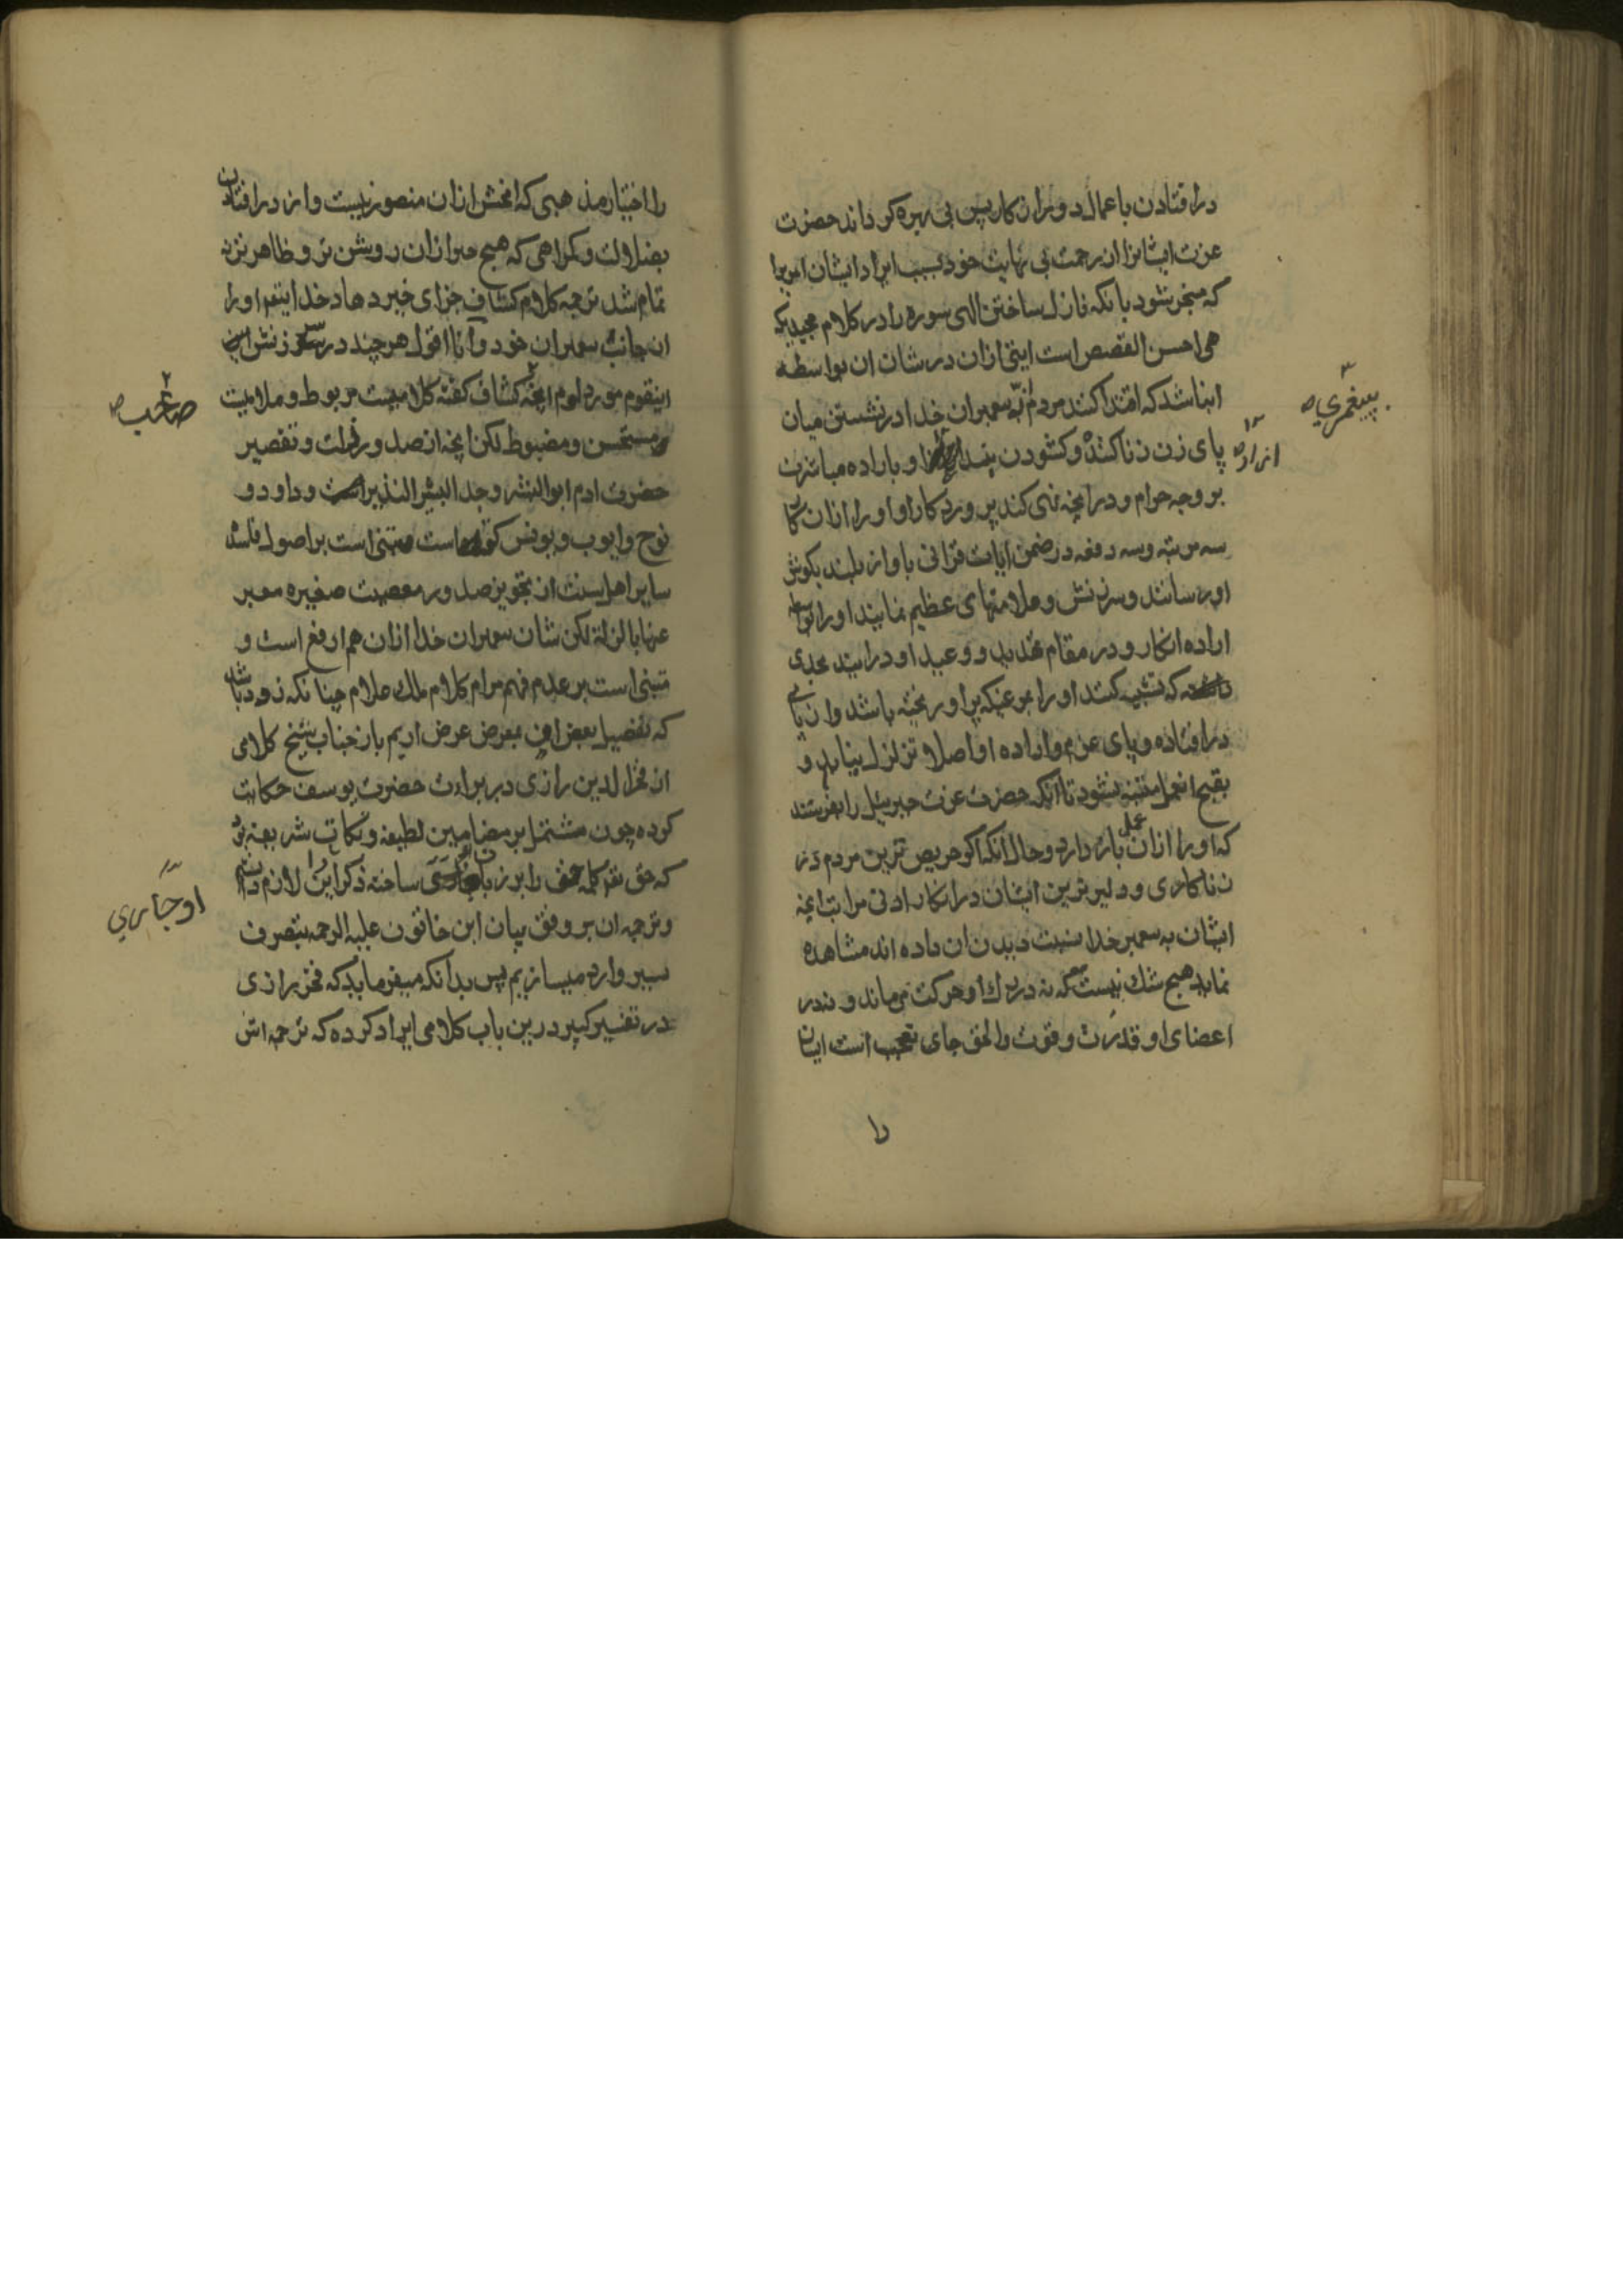 در افتادن باعمال دور از کار پس بی بهره کرداند حضرت
عزت ایشانرا از رحمت بی نهایت خود بسبب ایراد ایشان امریرا
که منجر بشود بانکه نازل ساختن الهی سوره را در کلام مجید که
هی احسن القصص است ایتی ازان در شان ان بواسطه
انباشد که اقتدا کنند مردم به پیغمبران خدا در نشستن میان
پای زن زنا کننده و کشودن بند او و باراده مباشرت
بر وجه حرام و در انچه نهی کند پرورد کار او او را ازان
سه مرتبه و سه دفعه در ضمن ایات قرانی باواز بلند بکوش
او رسانند و سرزنش و ملامتهای عظیم نمایند او را
اراده انکار و در مقام تهدید و وعید او درایند بحدی
که تشبیه کنند او را بمرغیکه پر او ریخته باشد وان
در افتاده و پای عزم و اراده او اصلا تزلزل نیابد و
بقبح انعمل متنبه نشود تا انکه حضرت عزت جبرییل را بفرستند
که او را ازان عمل باز دارد و حال انکه اکر حریص ترین مردم در
زناکاری و دلیرترین ایشان در انکار ادنی مراتب انچه
ایشان به پیغمبر خدا نسبت دیدن ان داده اند مشاهده
نماید هیچ شک نیست که نه در رک او حرکت می ماند و نه در
اعضای او قدرت و قوت والحق جای تعجب است ایشان
را
پیغمبری
ازاره
را اختیار مذهبی که افحش ازان متصور نیست و از در افتادن
بضلالت و کمراهی که هیچ چیز ازان روشن تر و ظاهر تر نه
تمام شد ترجمه کلام کشاف جزای خیر دهاد خدا اینقم او را
از جانب پیغمبران خود و انا اقول هر چند در سرزنش این
اینقوم مورد لوم انچه کشاف کفته کلامیست مربوط و ملامیت
مستحسن و مضبوط لکن انچه از صدور زلت و تقصیر
حضرت ادم ابو البشر وجد البشر النذیر و داود و
نوح و ایوب و یونس کفته است مبتنی است بر اصول فاسده
سایر اهل سنت از تجویز صدور معصیت صغیره معبر
عنها بالزلة لکن شان پیغمبران خدا ازان هم ارفع است و
مبتنی است بر عدم فهم مرام کلام ملک علام چنانکه زود باشد
که تفصیل بعض ان بمعرض عرض اریم باز جناب شیخ کلامی
از فخر الدین رازی در براءت حضرت یوسف حکایت
کرده چون مشتمل بر مضامین لطیفه و نکات شریفه بود
که حق تعم کلمه حق را بر زبان او جاری ساخته ذکر این را لازم دانستم
و ترجمه ان بر وفق بیان ابن خاتون علیه الرحمه بتصرف
یسیر وارد میسازیم پس بدانکه میفرماید که فخر رازی
در تفسیر کبیر درین باب کلامی ایراد کرده که ترجمه اش
صاحب
او جاری